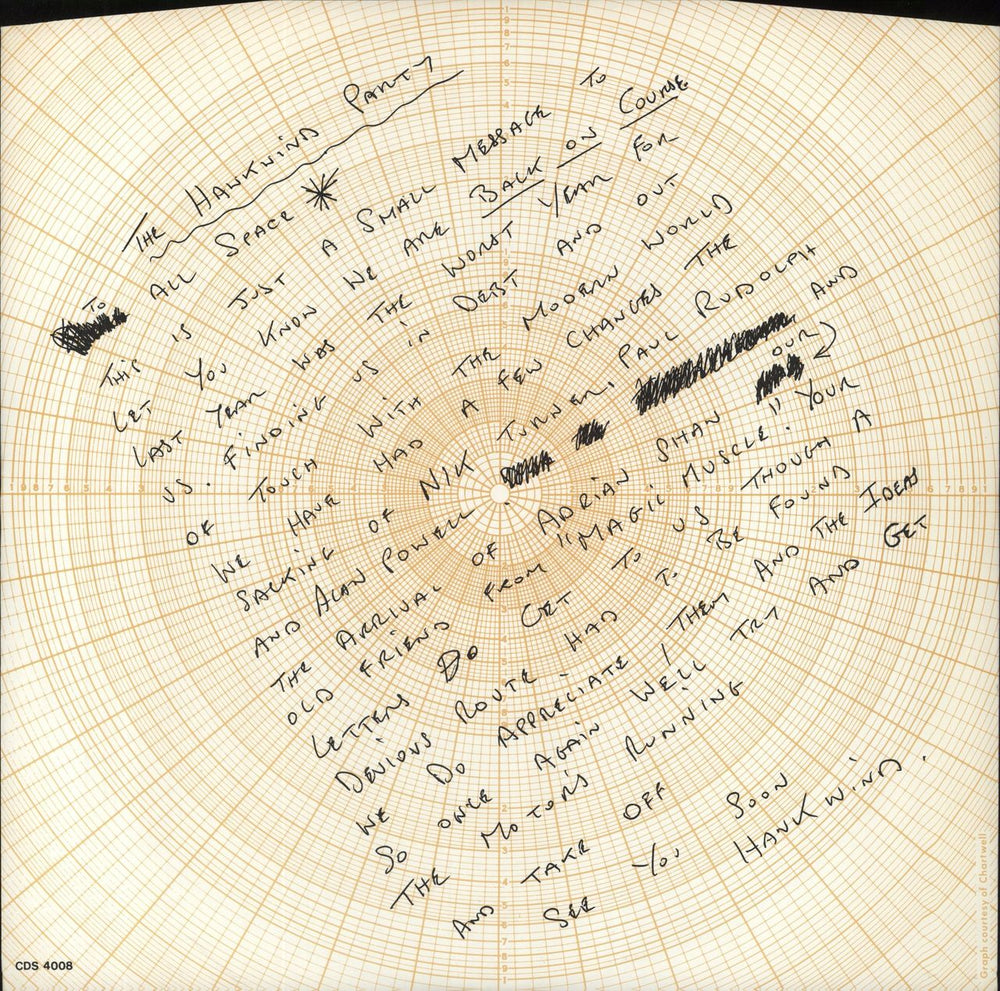 THE HAWKWIND PARTY
TO ALL SPACE
THIS IS JUST A SMALL MESSAGE TO
LET YOU KNOW WE ARE BACK ON COURSE
LAST YEAR WAS THE WORST YEAR FOR
US. FINDING US IN DEBT AND OUT
OF TOUCH WITH THE MODERN WORLD
WE HAVE HAD A FEW CHANGES THE
SACKING OF NIK TURNER, PAUL RUDOLPH
AND ALAN POWELL. AND
THE ARRIVAL OF ADRIAN SHAW OUR
OLD FRIEND FROM "MAGIC MUSCLE." YOUR
LETTERS DO GET TO US THOUGH A
DEVIOUS ROUTE HAD TO BE FOUND
WE DO APPRECIATE THEM AND THE IDEAS
SO ONCE AGAIN WELL TRY AND GET
THE MOTORS RUNNING
AND TAKE OFF
SEE YOU SOON
HAWKWIND.
CDS 4008
Graph courtesy of Chartwell